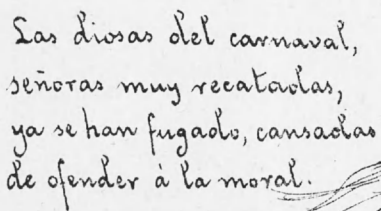 Las diosas del carnaval,
señoras muy recatadas,
ya se han fugado, cansadas
de ofender à la moral.